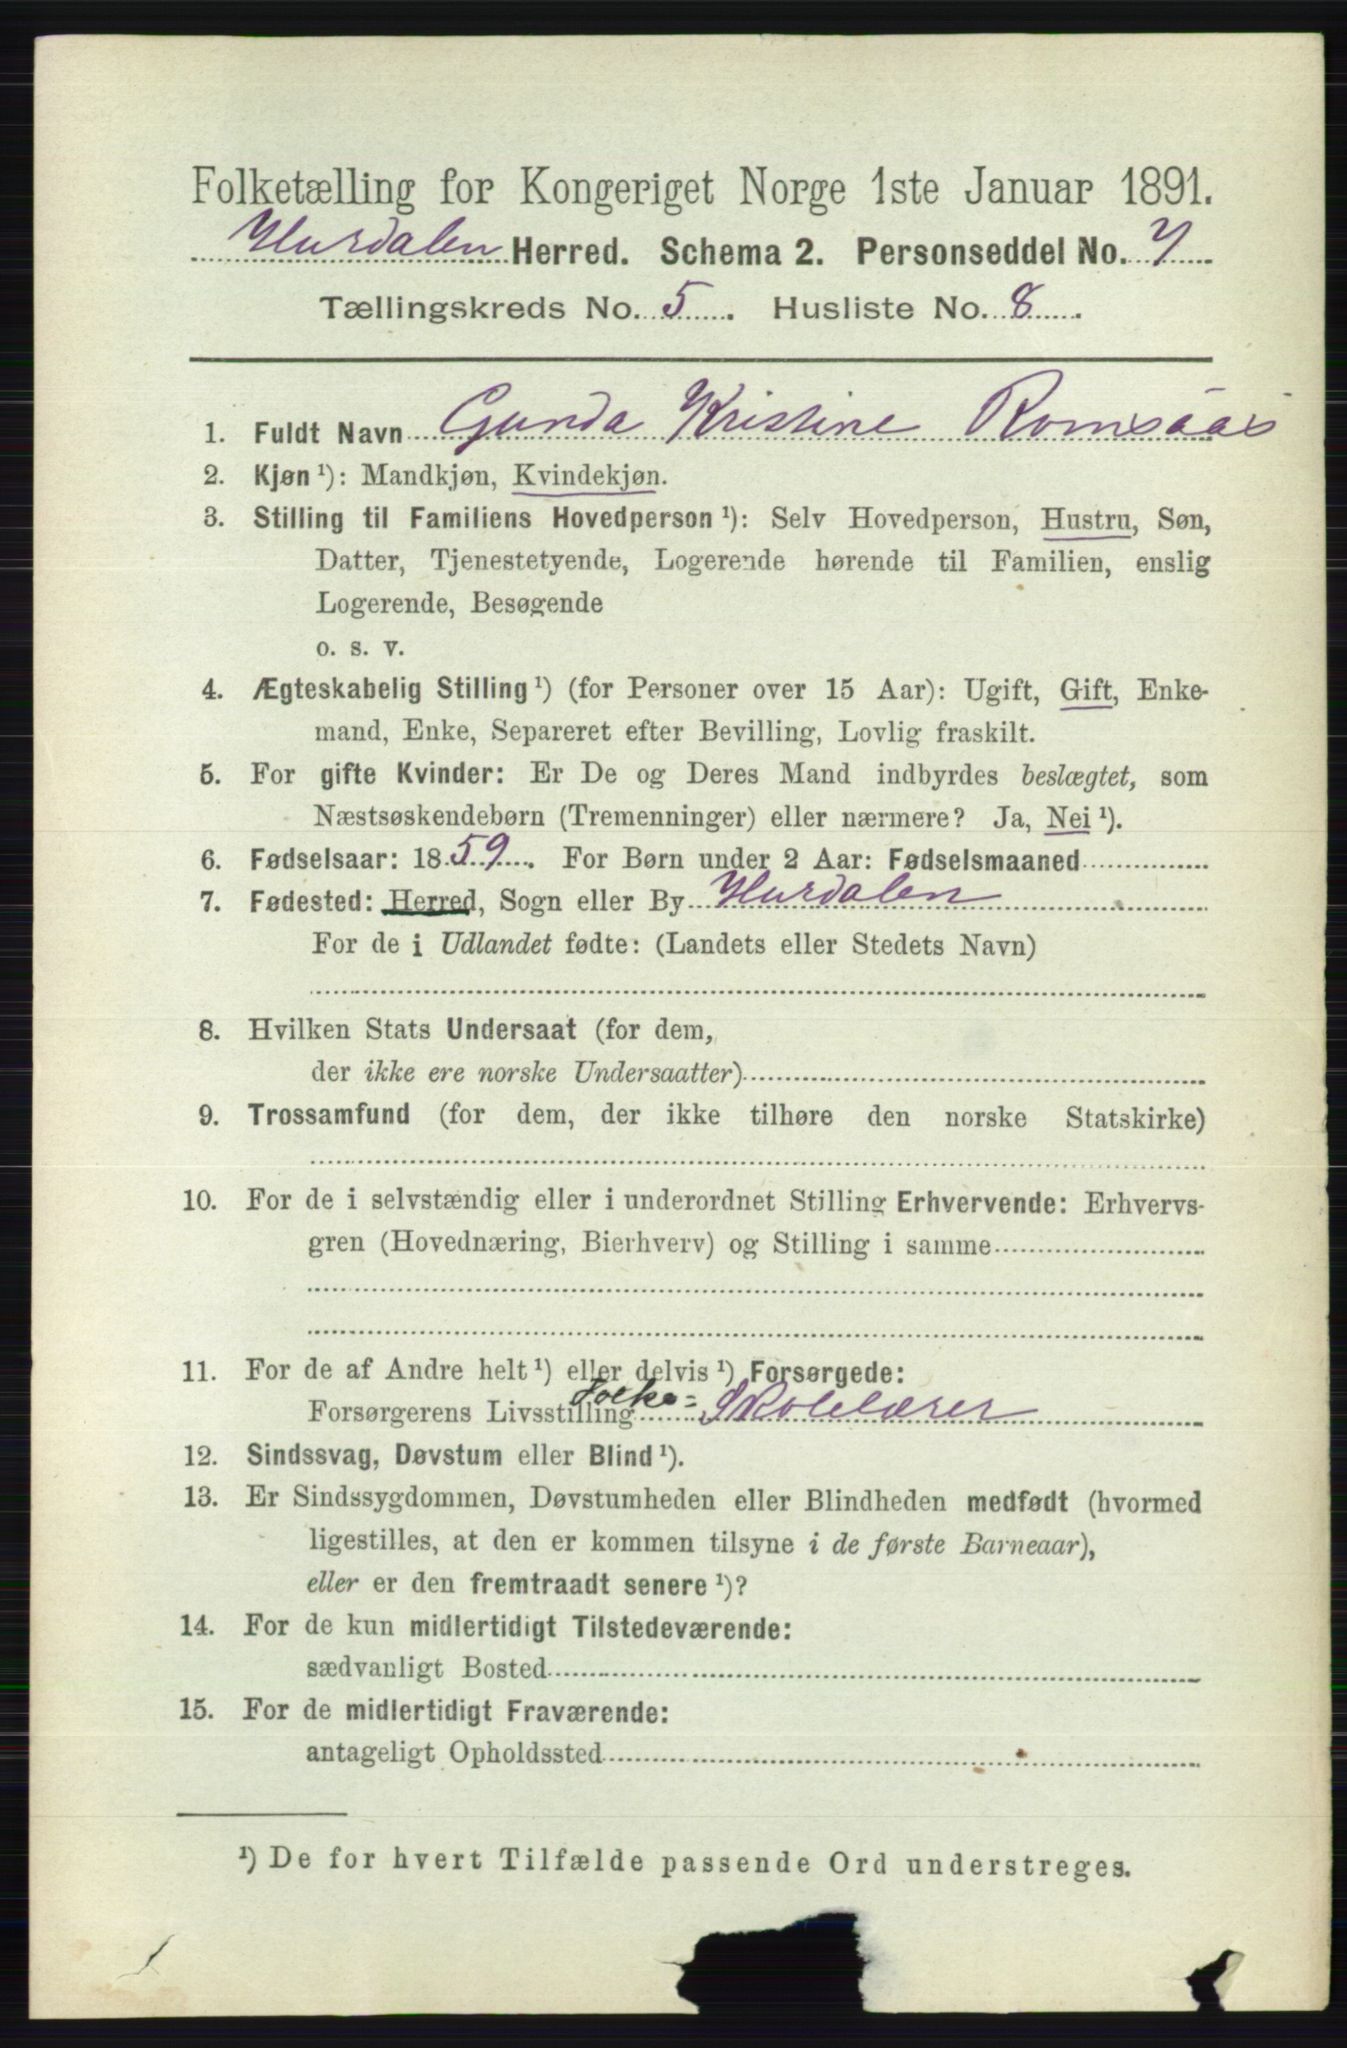 Folketælling for Kongeriget Norge 1ste Januar 1891.
Hurdalen Herred. Schema 2. Personseddel No. 7
Tællingskreds No. 5. Husliste No. 8.
1. Fuldt Navn Gunda Kristine Romsaas
2. Kjøn ¹): Mandkjøn, Kvindekjøn.
3. Stilling til Familiens Hovedperson ¹): Selv Hovedperson, Hustru, Søn,
Datter, Tjenestetyende, Logerende hørende til Familien, enslig
Logerende, Besøgende
o. s. v.
4. Ægteskabelig Stilling ¹) (for Personer over 15 Aar): Ugift, Gift, Enke-
mand, Enke, Separeret efter Bevilling, Lovlig fraskilt.
5. For gifte Kvinder: Er De og Deres Mand indbyrdes beslægtet, som
Næstsøskendebørn (Tremenninger) eller nærmere? Ja, Nei ¹).
6. Fødselsaar: 1859. For Børn under 2 Aar: Fødselsmaaned
7. Fødested: Herred, Sogn eller By Hurdalen
For de i Udlandet fødte: (Landets eller Stedets Navn)
8. Hvilken Stats Undersaat (for dem,
der ikke ere norske Undersaatter)
9. Trossamfund (for dem, der ikke tilhøre den norske Statskirke)
10. For de i selvstændig eller i underordnet Stilling Erhvervende: Erhvervs-
gren (Hovednæring, Bierhverv) og Stilling i samme
11. For de af Andre helt ¹) eller delvis ¹) Forsørgede:
Forsørgerens Livsstilling Folke= Skolelærer
12. Sindssvag, Døvstum eller Blind ¹).
13. Er Sindssygdommen, Døvstumheden eller Blindheden medfødt (hvormed
ligestilles, at den er kommen tilsyne i de første Barneaar),
eller er den fremtraadt senere ¹)?
14. For de kun midlertidigt Tilstedeværende:
sædvanligt Bosted
15. For de midlertidigt Fraværende:
antageligt Opholdssted
¹) De for hvert Tilfælde passende Ord understreges.